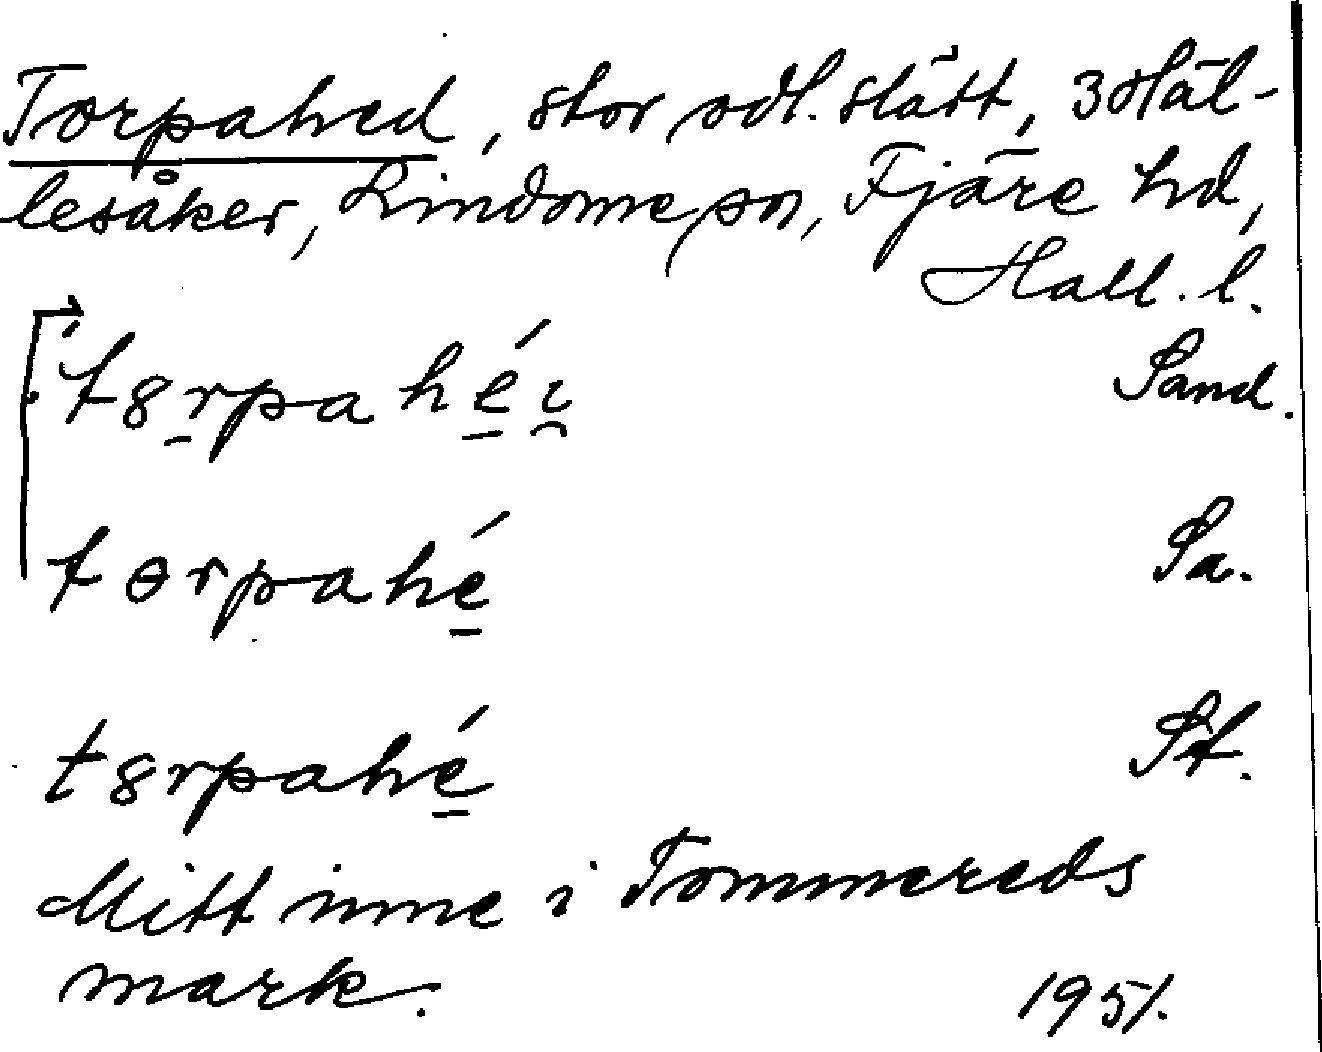 Torpahed, stor odl. slätt, 3 Häl-
lesåker, Lindome sn, Fjäre hd,
Hall. l.
t8rpahéi Sand.
tɵrpahé Sa.
t8rpahé St.
Mitt inne i Tommereds
mark. 1951.